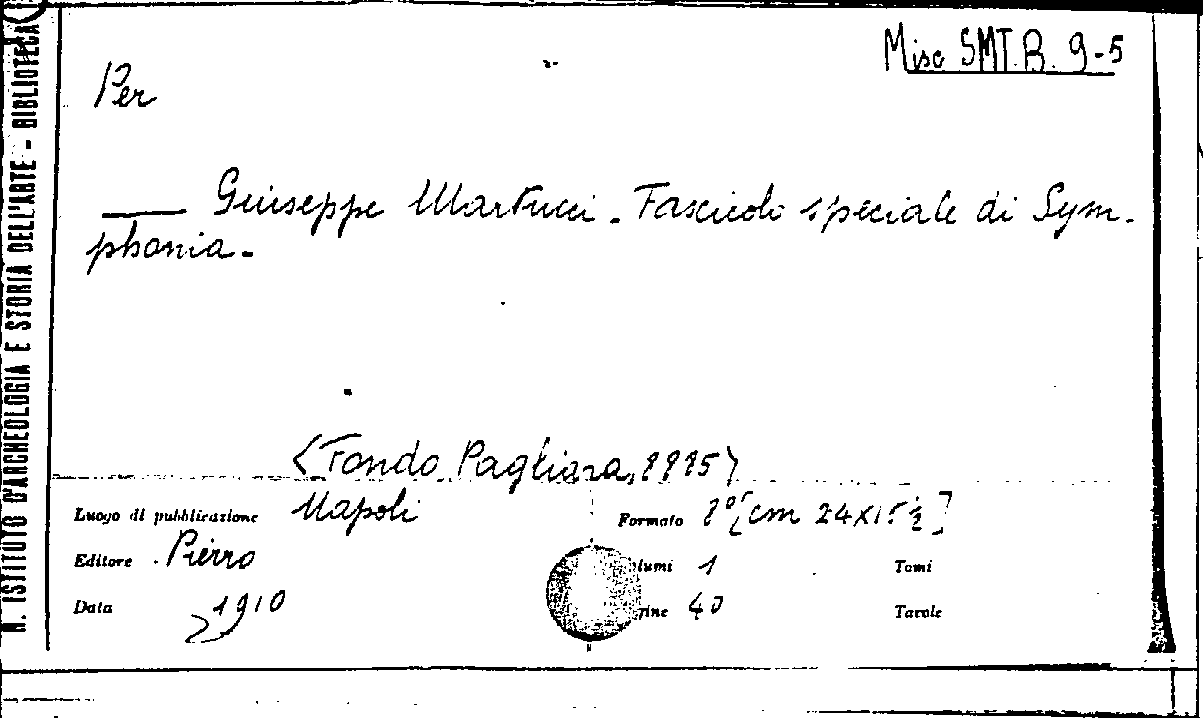 Misc SMT. B. 9-5
Per
—— Giuseppe Martucci - Fascicolo speciale di Sym-
phonia -
<Fondo Pagliara, 1115>
Luogo di pubblicazione Napoli
Formato 8° [cm 24x15 ½]
Editore Pierro
lumi 1
Tomi
Data 1910
gine 40
Tavole
R. ISTITUTO D'ARCHEOLOGIA E STORIA DELL'ARTE - BIBLIOTECA